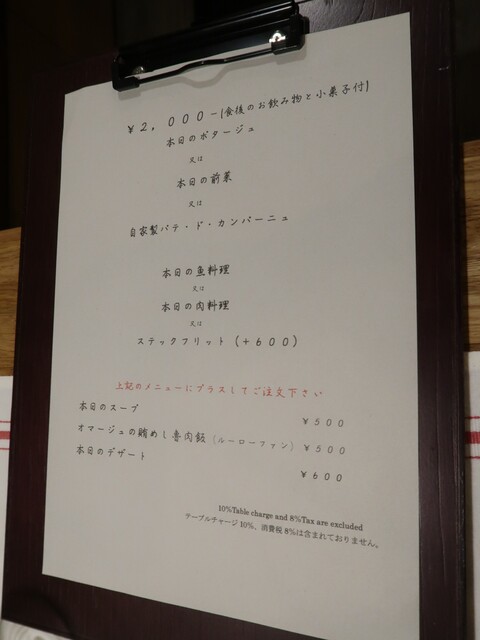 ¥2,000-(食後のお飲み物と小菓子付)
本日のポタージュ
又は
本日の前菜
又は
自家製パテ・ド・カンパーニュ
本日の魚料理
又は
本日の肉料理
又は
ステックフリット (+600)
上記のメニューにプラスしてご注文下さい
本日のスープ ¥500
オマージュの賄めし魯肉飯 (ルーローファン) ¥500
本日のデザート ¥600
10%Table charge and 8%Tax are excluded
テーブルチャージ 10%、消費税 8%は含まれておりません。